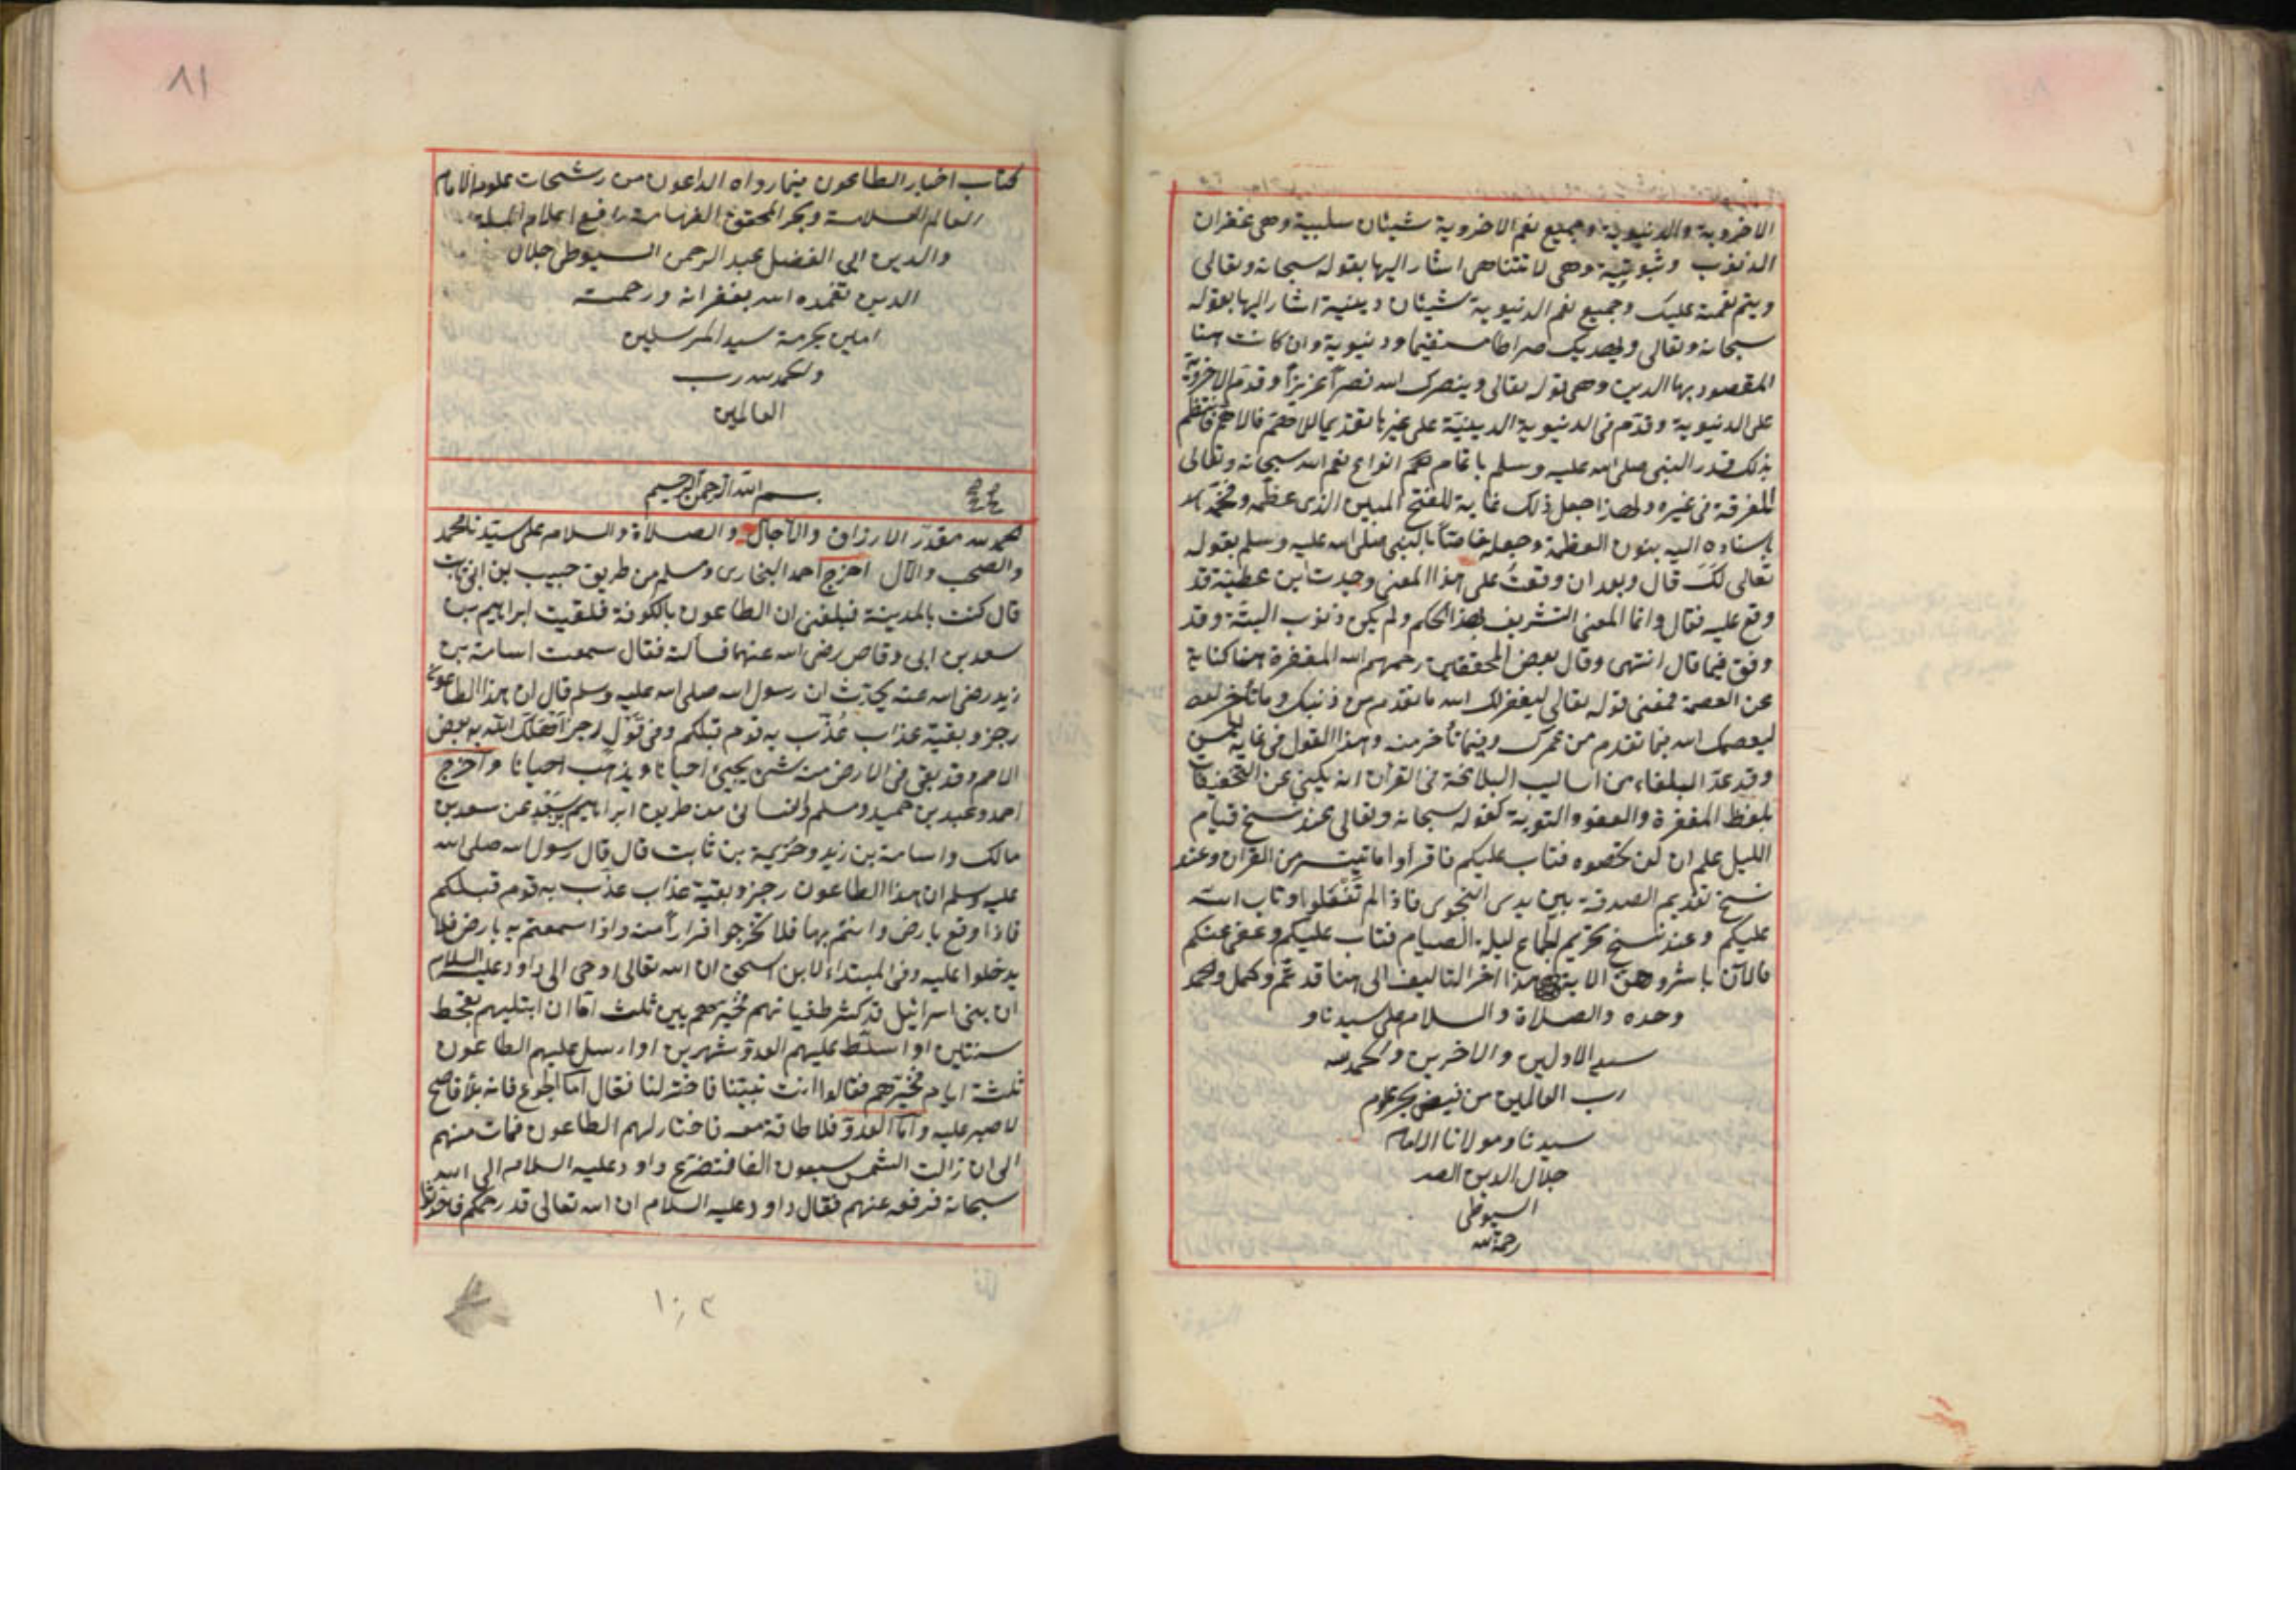 الاخروية والدنيوية وجميع نعم الاخروية شيئان سلبية وهى غفران
الذنوب وثبوتية وهى لا تتناهى اشار اليها بقوله سبحانه وتعالى
ويتم نعمته عليك وجميع نعم الدنيوية شيئان دينية اشار اليها بقوله
سبحانه وتعالى ويهديك صراطا مستقيما ودنيوية وان كانت هنا
المقصود بها الدين وهى قوله تعالى وينصرك الله نصرا عزيزا وقدم الاخروية
على الدنيوية وقدم فى الدنيوية الدينية على غيرها تقديما للاهم فالاهم فانتظم
بذلك قدر النبى صلى الله عليه وسلم باتمام انواع نعم الله سبحانه وتعالى
المفرقة فى غيره ولهذا جعل ذلك غاية للفتح المبين الذى عظمه وفخمه
باسناده اليه بنون العظمة وجعله خاصا بالنبى صلى الله عليه وسلم بقوله
تعالى لك قال وبعد ان وقعت على هذا المعنى وجدت ابن عطية قد
وقع عليه فقال وانما المعنى التشريف بهذا الحكم ولم يكن ذنوب البتة وقد
وفق فيما قال انتهى وقال بعض المحققين رحمهم الله المغفرة هنا كناية
عن العصمة فمعنى قوله تعالى ليغفر لك الله ما تقدم من ذنبك وما تأخر
ليعصمك الله فيما تقدم من عمرك وفيما تأخر منه وهذا القول فى غاية الحسن
وقد عد البلغاء من اساليب البلاغة فى القرآن انه يكنى عن التخفيفات
بلفظ المغفرة والعفو والتوبة كقوله سبحانه وتعالى عند نسخ قيام
الليل علم ان لن تحصوه فتاب عليكم فاقرأوا ما تيسر من القرآن وعند
نسخ تقديم الصدقة بين يدى النجوى فاذ لم تفعلوا وتاب الله
عليكم وعند نسخ تحريم الجماع ليلة الصيام فتاب عليكم وعفى عنكم
فالآن باشروهن الاية هذا آخر التأليف الى هنا قد تم وكمل والحمد
وحده والصلاة والسلام على سيدنا و
سيد الاولين والاخرين والحمد لله
رب العالمين من فيض بحر علوم
سيدنا ومولانا الامام
جلال الدين الصدر
السيوطى
رحمه الله
٨١
كتاب اخبار الطاعون فيما رواه الداعون من رشحات علوم الامام
العالم العلامة وبحر المحقق الفهامة رافع اعلام الملة
والدين ابى الفضل عبد الرحمن السيوطى جلال
الدين تغمده الله بغفرانه ورحمته
امين بحرمة سيد المرسلين
والحمد لله رب
العالمين
بسم الله الرحمن الرحيم
الحمد لله مقدر الارزاق والآجال والصلاة والسلام على سيدنا محمد
والصحب والآل اخرج احمد البخارى ومسلم من طريق حبيب بن ابى ثابت
قال كنت بالمدينة فبلغنى ان الطاعون بالكوفة فلقيت ابراهيم بن
سعد بن ابى وقاص رضى الله عنهما فسألته فقال سمعت اسامة بن
زيد رضى الله عنه يحدث ان رسول الله صلى الله عليه وسلم قال ان هذا الطاعون
رجز وبقية عذاب عذب به قوم قبلكم وفى قول رجز اهلك الله به بعض
الامم وقد بقى فى الارض منه شئ يجيئ احيانا ويذهب احيانا واخرج
احمد وعبد بن حميد ومسلم والنسائى من طريق ابراهيم بن سعد عن سعد بن
مالك واسامة بن زيد وخزيمة بن ثابت قال قال رسول الله صلى الله
عليه وسلم ان هذا الطاعون رجز وبقية عذاب عذب به قوم قبلكم
فاذا وقع بارض وانتم بها فلا تخرجوا فرارا منه واذا سمعتم به بارض فلا
يدخلوا عليه وفى المبتداء لابن اسحق ان الله تعالى اوحى الى داود عليه السلام
ان بنى اسرائيل قد كثر طغيانهم فخيرهم بين ثلث اما ان ابتليهم بقحط
سنتين او اسلط عليهم العدو شهرين او ارسل عليهم الطاعون
ثلثة ايام فخيرهم فقالوا انت نبينا فاختر لنا فقال اما الجوع فانه بلاء فاضح
لا صبر عليه واما العدو فلا طاقة معه فاختار لهم الطاعون فمات منهم
الى ان زالت الشمس سبعون الفا فتضرع داود عليه السلام الى الله
سبحانه فرفعه عنهم فقال داود عليه السلام ان الله تعالى قد رحمكم